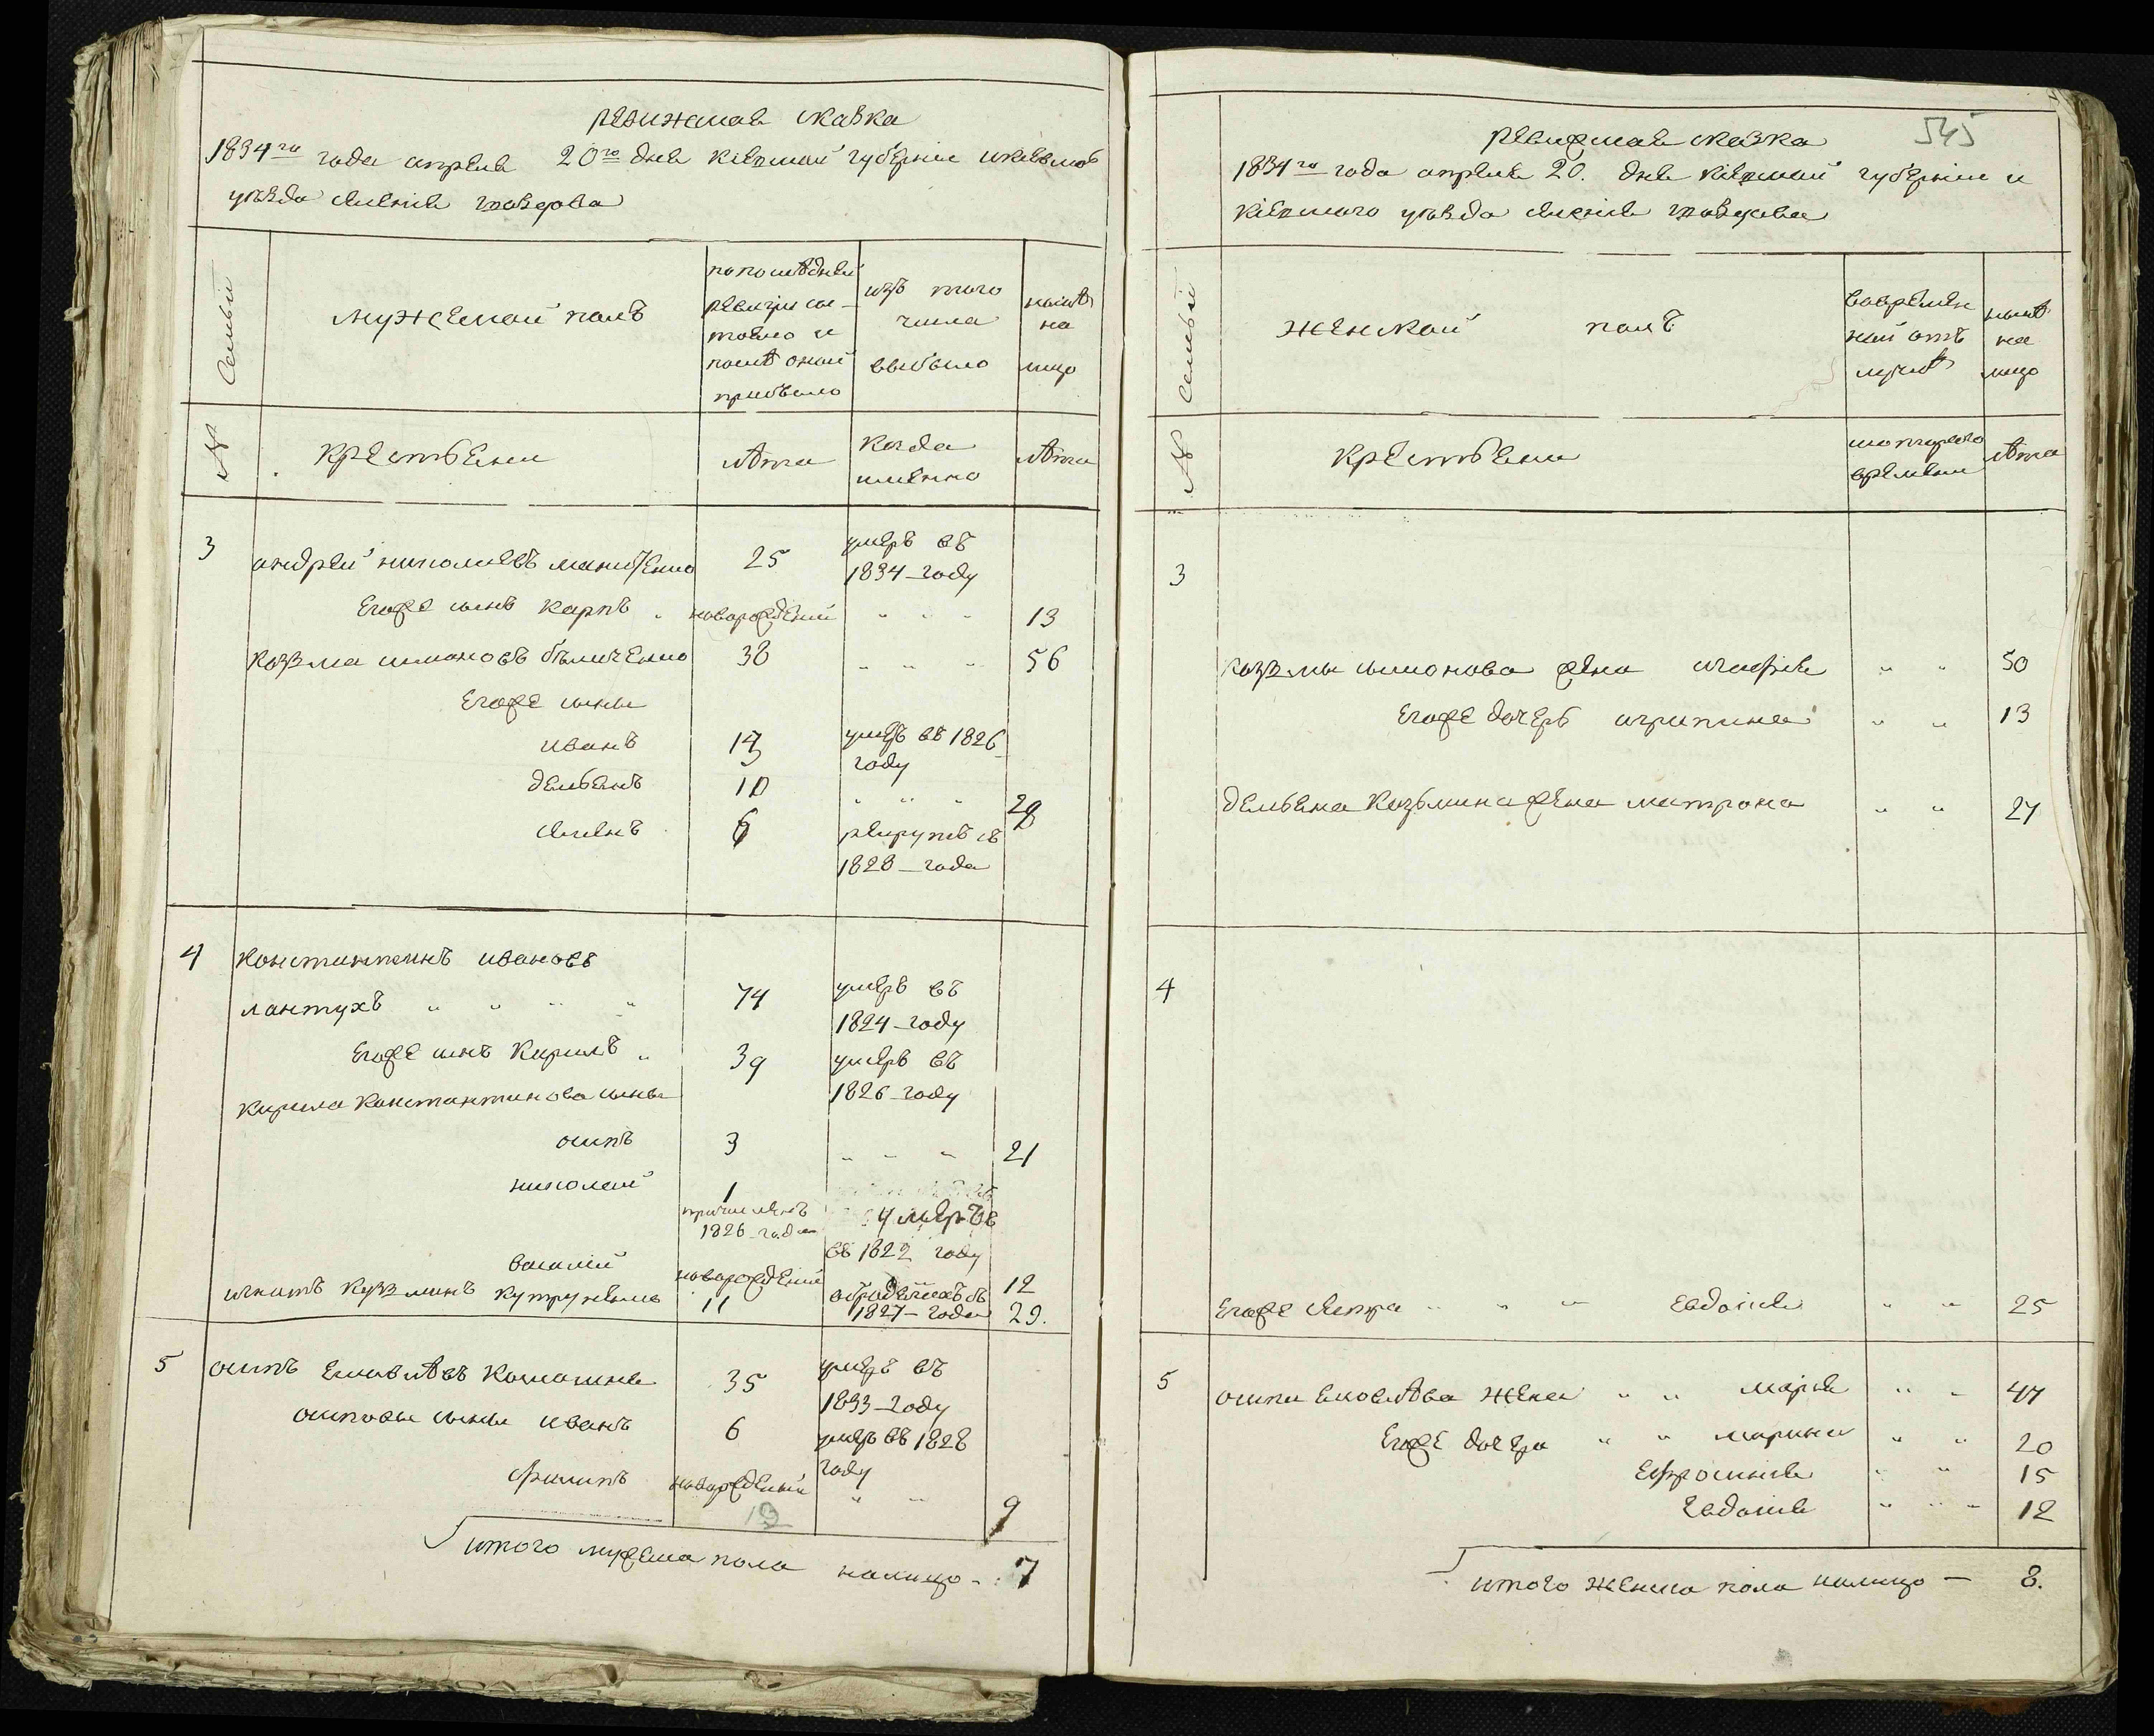 ревижская сказка
1834го года апреля 20го дня кіевской губерніи и кіевского
уѣзда селенія гвоздова
Семьи
мужеской полъ
по последней
ревизіи со-
тояло и
послѣ оной
прибыло
изъ того
числа
выбыло
нынѣ
на
лицо
№
Крестьяни
лѣта
Когда
именно
лѣта
3
андрей николаевъ
25
умеръ въ
1834 году
Егоже сынъ Карпъ
новорожденій
13
Козма симоновъ
38
56
Егоже сыны
иванъ
13
умеръ въ 1826
году
демьянъ
10
28
семенъ
6
рекрутъ съ
1828 года
4
Константинъ ивановъ
лантухъ
74
умеръ въ
1824 году
Егоже синъ Кирилъ
39
умеръ въ
1826 году
Кирила Константинова сыны
осипъ
3
21
николай
1
1826 года
умеръ
въ 1822 году
василій
новорожденій
12
игнатъ Кузминъ
11
1827 года
29.
5
осипъ
35
умеръ въ
1833 году
осиповы сыны иванъ
6
умеръ въ 1828
году
филипъ
новорожденый
9
19
итого мужеска пола налицо
7
545
ревижская сказка
1834го года апреля 20. дня кіевской губерніи и
кіевского уѣзда селенія гвоздова
Семьи
женской полъ
во времен
ной отъ
лучкѣ
нынѣ
на
лицо
№
Крестьяни
с котораго
времени
лѣта
3
козьмы симонова жена агафія
50
Егоже дочерь агрипина
13
демьяна Козьмина жена матрона
27
4
Егоже сестра Евдокія
25
5
осипа жена марія
47
Егоже дочери марина
20
Ефросинія
15
Евдокія
12
итого женска пола налицо
8.